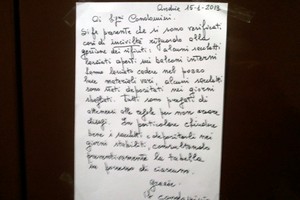 Andria 15-1-2013
Ai Sigg. Condomini.
Si fa presente che si sono verificati
casi di inciviltà riguardo alla
gestione dei rifiuti: alcuni sacchetti
lasciati aperti sui balconi interni
hanno lasciato cadere nel pozzo
luce materiali vari, alcuni sacchetti
sono stati depositati nei giorni
sbagliati. Tutti sono pregati di
attenersi alle regole per non essere
In particolare chiudere
bene i sacchetti e depositarli nei
giorni stabiliti, consultando
preventivamente la tabella
in possesso di ciascuno.
Grazie